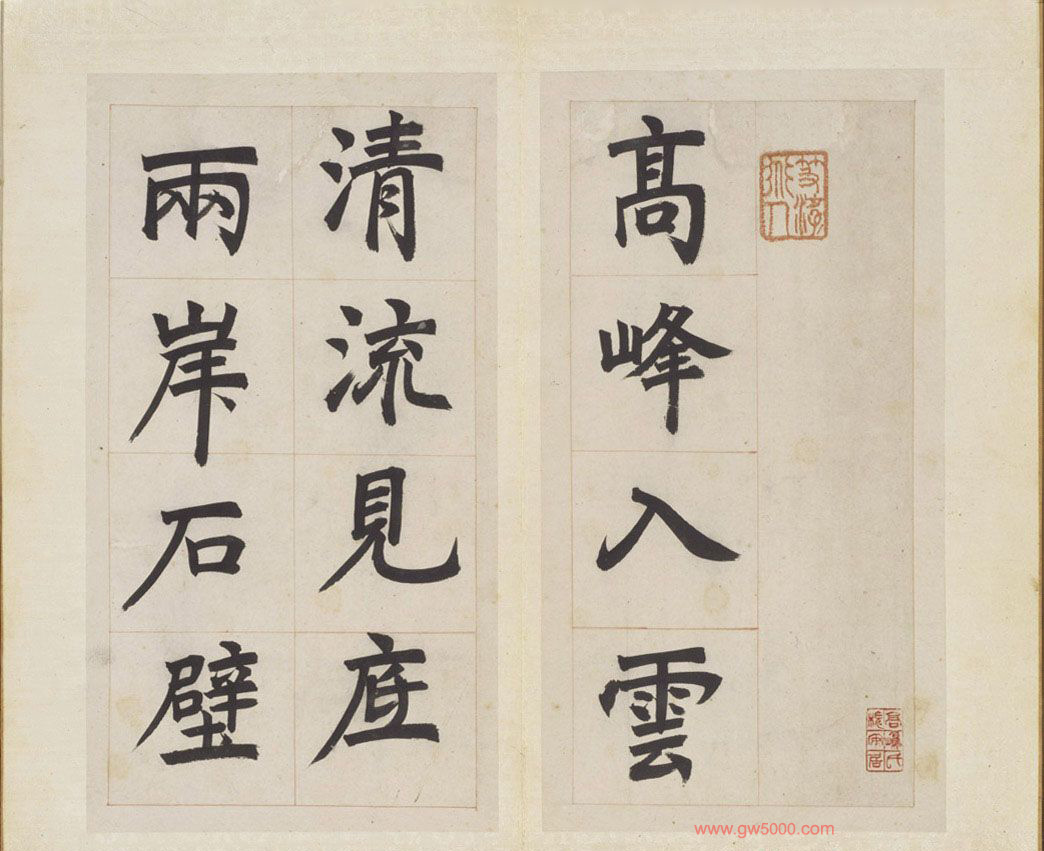 髙峰入雲
清流見底
兩岸石壁
www.gw5000.com